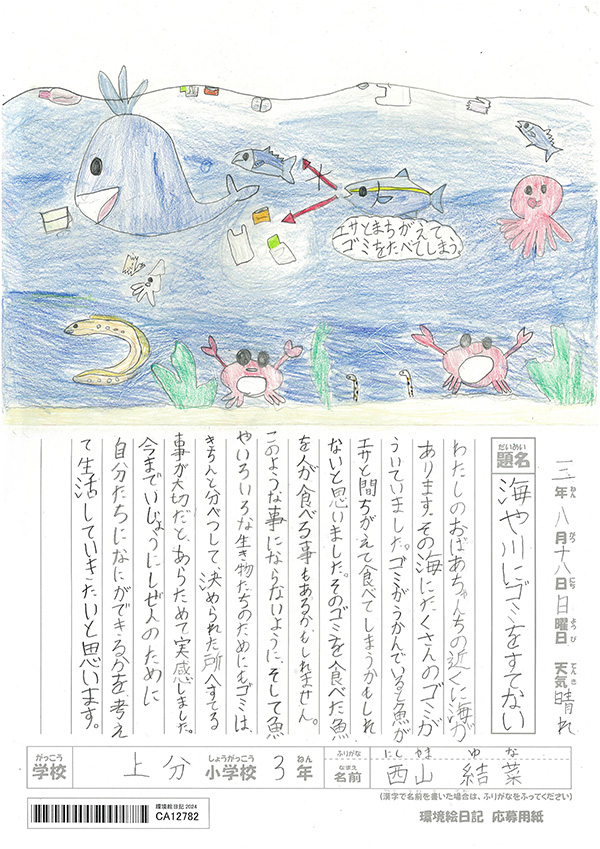 エサとまちがえて
ゴミをたべてしまう。
年 八月十八日 日曜日 天気 晴れ
ねん がつ にち ようび てんき
だいめい
題名
海や川にゴミをすてない
わたしのおばあちゃんちの近くに海が
あります。その海にたくさんのゴミが
ういていました。ゴミがうかんでいると魚が
エサと間ちがえて食べてしまうかもしれ
ないと思いました。そのゴミを食べた魚
を人が食べる事もあるかもしれません。
このような事にならないように、そして魚
やいろいろな生き物たちのためにもゴミは、
きちんと分べつして、決められた所へすてる
事が大切だと、あらためて実感しました。
今までいじょうにしぜんのために
自分たちになにができるかを考え
て生活していきたいと思います。
がっこう しょうがっこう ねん
学校 上分 小学校 3年
ふりがな にしやま ゆな
なまえ
名前 西山 結菜
(漢字で名前を書いた場合は、ふりがなをふってください)
環境絵日記 2024
CA12782
環境絵日記 応募用紙